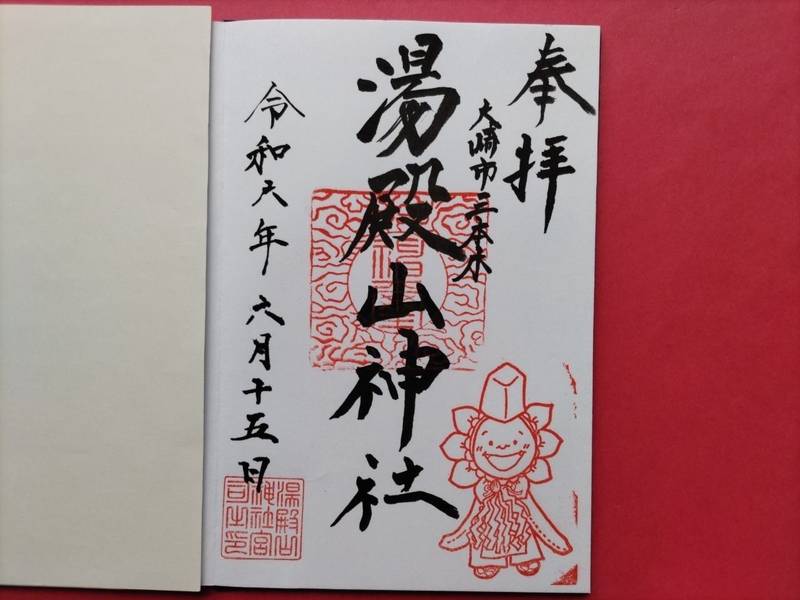 奉拝
大崎市三本木
湯殿山神社
令和六年 六月十五日
湯殿山
神社宮
司之印